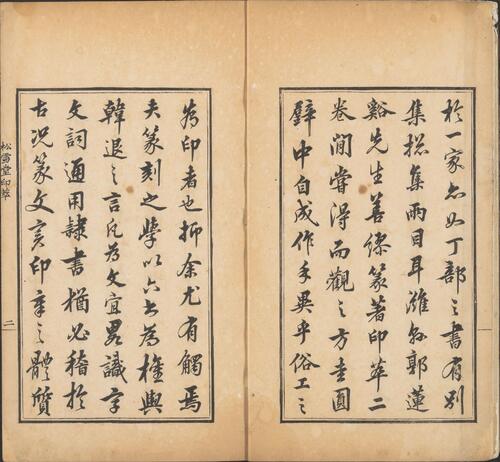 於一家亦如丁部之書有別
集總集兩目耳濰縣郭蓮
谿先生善繆篆著印萃二
卷閒嘗得而觀之方圭圓
璧中自成作手異乎俗工之
一
為印者也抑余尤有觸焉
夫篆刻之學以六書為權輿
韓退之言凡為文宜畧識字
文詞通用隸書猶必稽於
古況篆文實印章之體質
松雪堂印萃
二